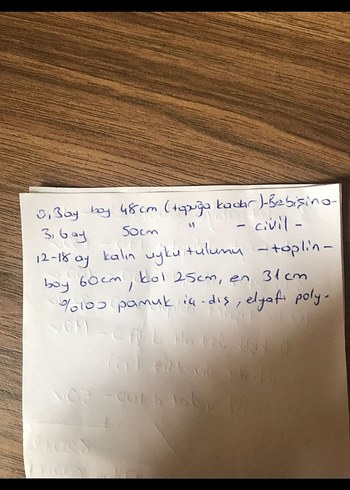 0,3 ay boy 48cm (topuğa kadar) -Bebişino-
3,6 ay 50cm " - civil -
12-18 ay kalın uyku tulumu -toplin-
boy 60cm, kol 25cm, en 31cm
%100 pamuk iç-dış, elyafı poly.